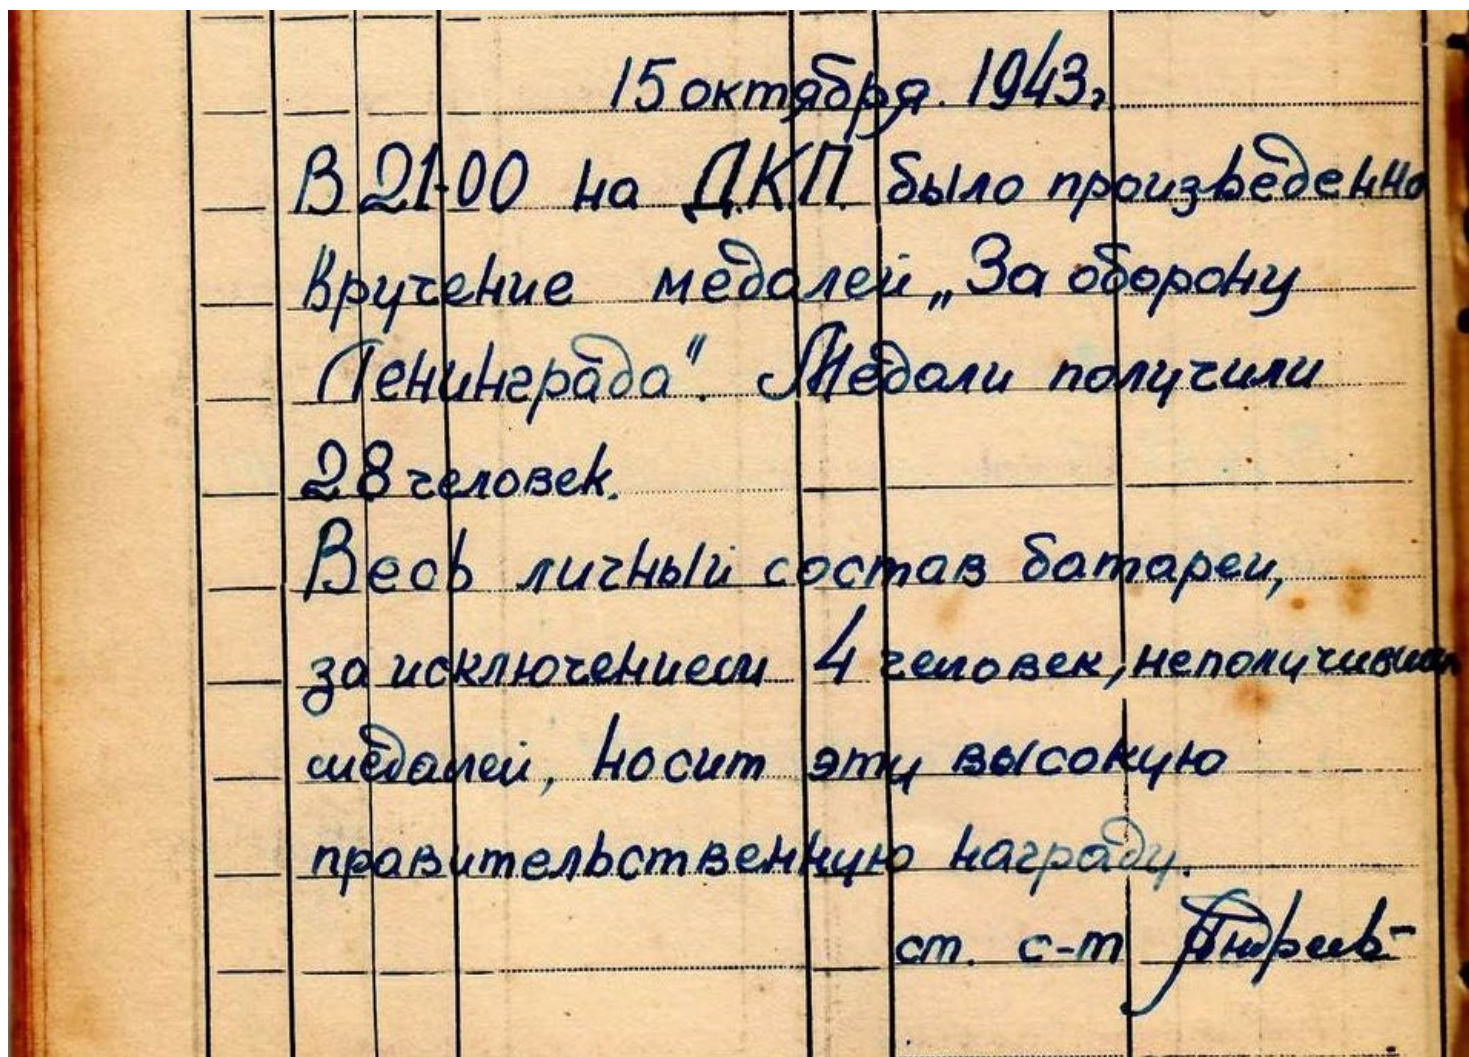 15 октября. 1943г
В 21-00 на Д.К.П. было произведенно
вручение медалей „За оборону
Ленинграда". Медали получили
28 человек.
Весь личный состав батареи,
за исключением 4 человек, неполучивших
медалей, носит эту высокую
правительственную награду.
ст. с-т Андреев